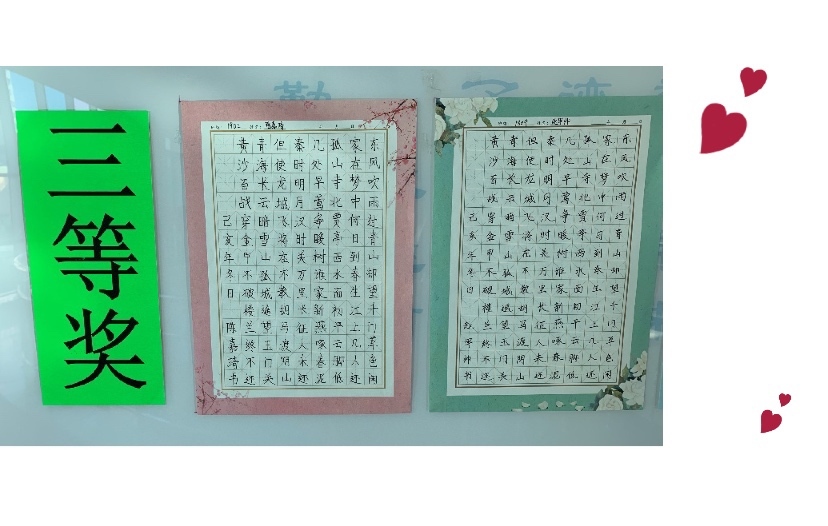 三等奖
东风吹雨过青山却望千门草色闲
家在梦中何日到春生江上几人还
孤山寺北贾亭西水面初平云脚低
几处早莺争暖树谁家新燕啄春泥
秦时明月汉时关万里长征人未还
但使龙城飞将在不教胡马渡阴山
青海长云暗雪山孤城遥望玉门关
黄沙百战穿金甲不破楼兰终不还
己亥年冬日 陈嘉琦书
东风吹雨过青山却望千门草色闲
家在梦中何日到春生江上几人还
孤山寺北贾亭西水面初平云脚低
几处早莺争暖树谁家新燕啄春泥
秦时明月汉时关万里长征人未还
但使龙城飞将在不教胡马渡阴山
青海长云暗雪山孤城遥望玉门关
黄沙百战穿金甲不破楼兰终不还
己亥年冬日 书